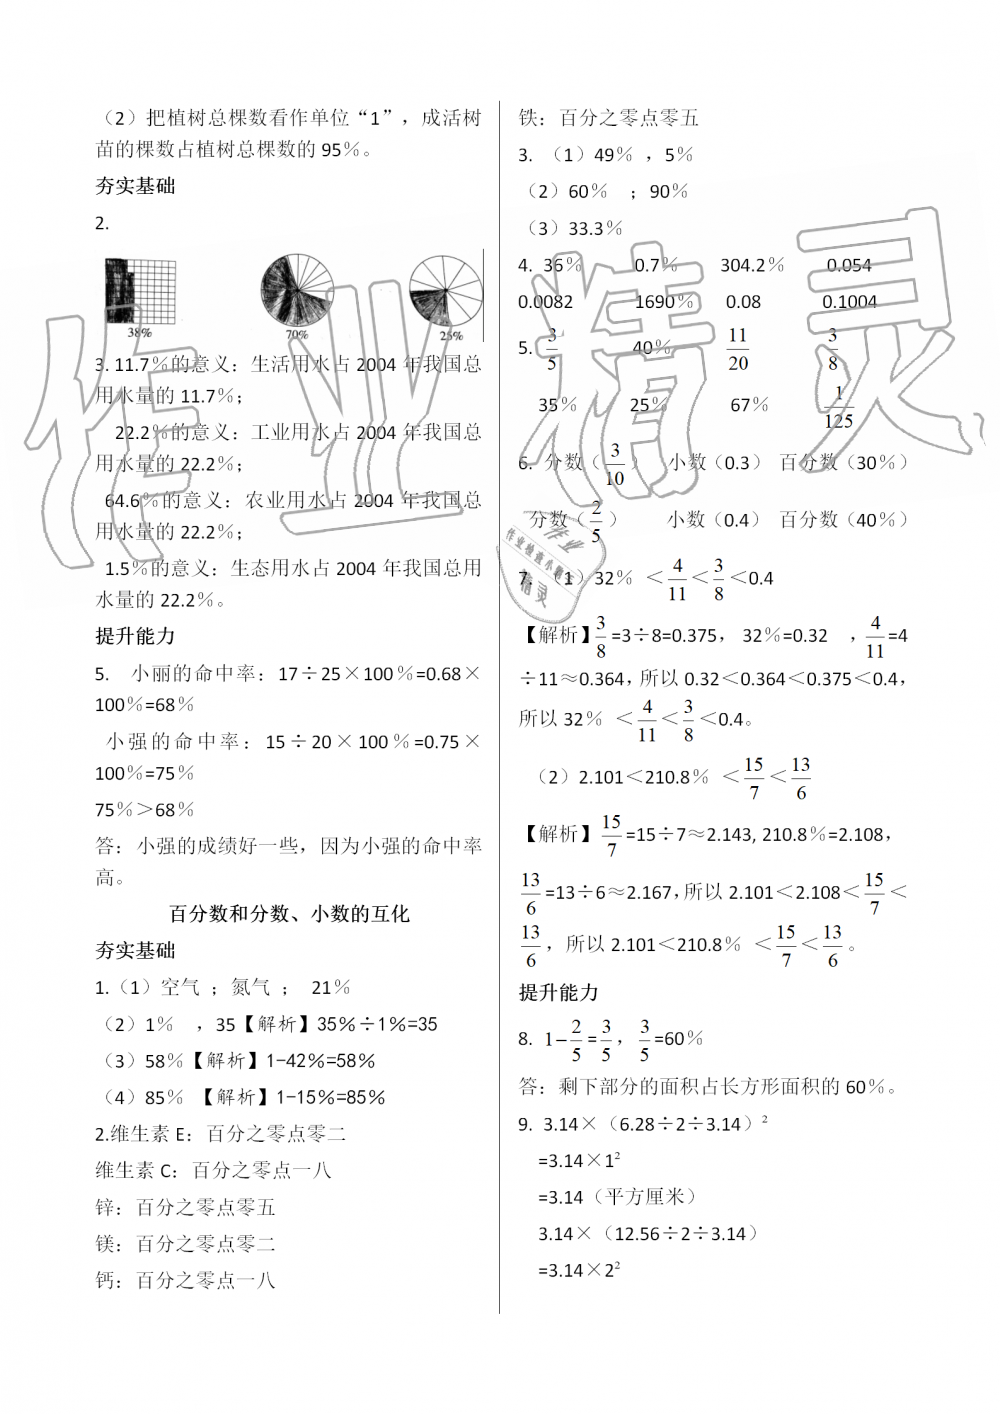 （2）把植树总棵数看作单位“1”，成活树
苗的棵数占植树总棵数的 95％。
夯实基础
2.
38%
70%
25%
3. 11.7％的意义：生活用水占 2004 年我国总
用水量的 11.7％；
22.2％的意义：工业用水占 2004 年我国总
用水量的 22.2％；
64.6％的意义：农业用水占 2004 年我国总
用水量的 22.2％；
1.5％的意义：生态用水占 2004 年我国总用
水量的 22.2％。
提升能力
5. 小丽的命中率：17÷25×100％=0.68×
100％=68％
小强的命中率：15÷20×100％=0.75×
100％=75％
75％＞68％
答：小强的成绩好一些，因为小强的命中率
高。
百分数和分数、小数的互化
夯实基础
1.（1）空气 ；氮气 ； 21％
（2）1％ ，35【解析】35％÷1％=35
（3）58％【解析】1-42％=58％
（4）85％ 【解析】1-15％=85％
2.维生素 E：百分之零点零二
维生素 C：百分之零点一八
锌：百分之零点零五
镁：百分之零点零二
钙：百分之零点一八
铁：百分之零点零五
3. （1）49％ ，5％
（2）60％ ；90％
（3）33.3％
4. 36％ 0.7％ 304.2％ 0.054
0.0082 1690％ 0.08 0.1004
5. 3/5 40％ 11/20 3/8
35％ 25％ 67％ 1/125
6. 分数（3/10） 小数（0.3） 百分数（30％）
分数（2/5） 小数（0.4） 百分数（40％）
7. （1）32％ ＜4/11＜3/8＜0.4
【解析】3/8=3÷8=0.375， 32％=0.32 ，4/11=4
÷11≈0.364，所以 0.32＜0.364＜0.375＜0.4，
所以 32％ ＜4/11＜3/8＜0.4。
（2）2.101＜210.8％ ＜15/7＜13/6
【解析】15/7=15÷7≈2.143, 210.8％=2.108，
13/6=13÷6≈2.167，所以 2.101＜2.108＜15/7＜
13/6，所以 2.101＜210.8％ ＜15/7＜13/6。
提升能力
8. 1−2/5=3/5，3/5=60％
答：剩下部分的面积占长方形面积的 60％。
9. 3.14×（6.28÷2÷3.14）²
=3.14×1²
=3.14（平方厘米）
3.14×（12.56÷2÷3.14）
=3.14×2²
作业精灵
作业
作业检查小精灵
精灵